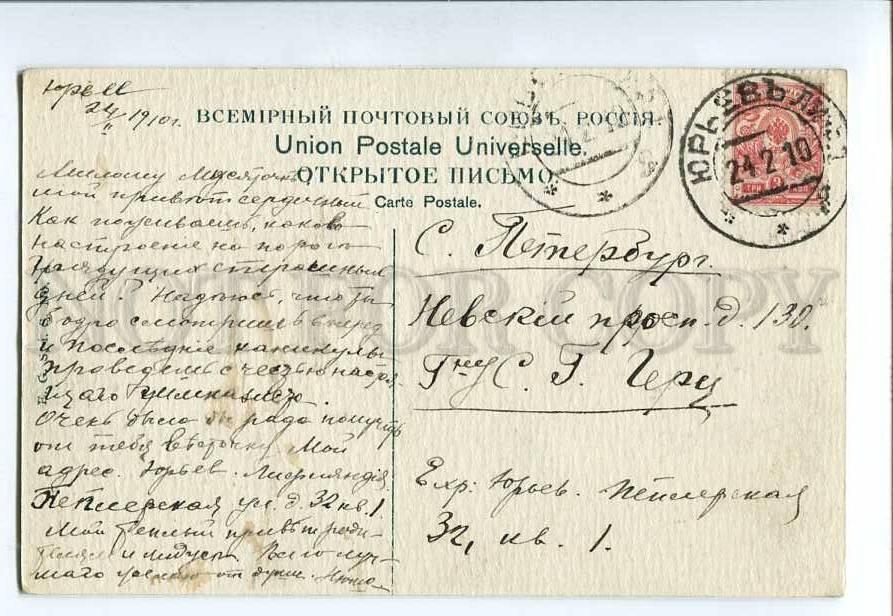 Юрьев
24/II 1910 г.
ВСЕМІРНЫЙ ПОЧТОВЫЙ СОЮЗЪ. РОССІЯ.
Union Postale Universelle.
ОТКРЫТОЕ ПИСЬМО.
Carte Postale.
ЮРЬЕВЪ ЛИФЛ
24 2 10
Милому
мой привѣт сердечный
Как поживаешь, каково
настроение на порогѣ
грядущих страшных
дней? Надѣюсь, что ты
бодро смотришь вперед
и послѣдніе каникулы
проведешь с честью настоя-
щаго гимназиста.
Очень была бы рада получить
от тебя вѣсточку. Мой
адрес. Юрьев. Лифляндія.
Пеплерская ул. д. 32 кв. 1.
Мой теплый привѣт роди-
телям и Всего луч-
шаго желаю от души. Нюша
С. Петербург.
Невскій просп. д. 130.
Гну С. Г. Герц
Юрьев. Пеплерская
32, кв. 1.